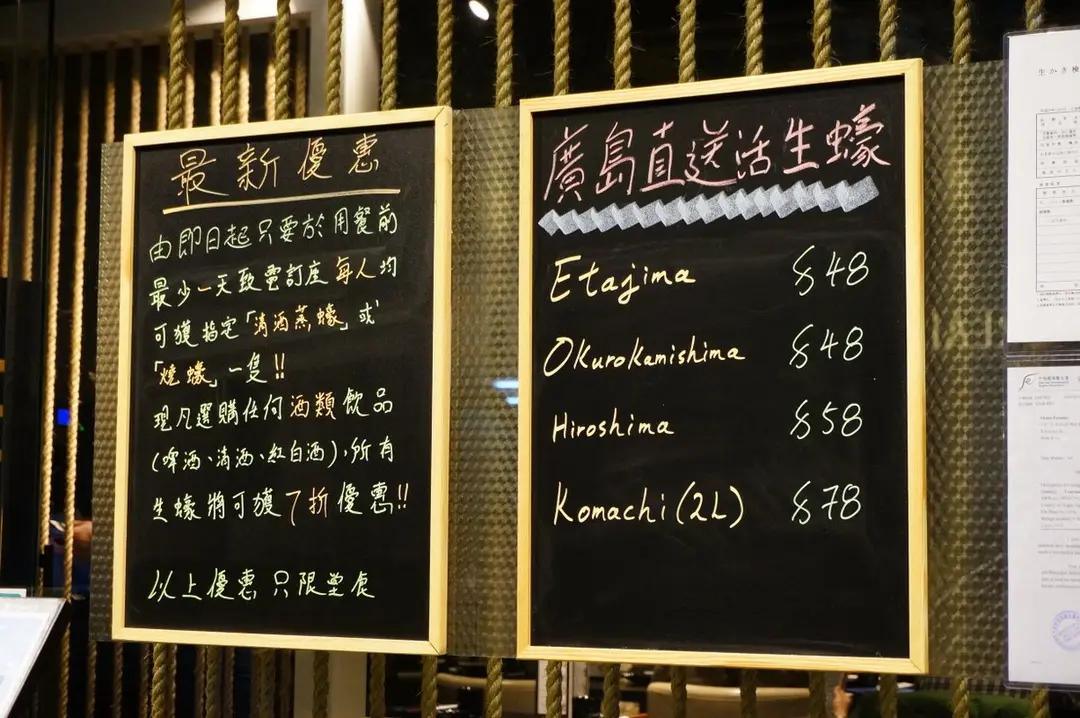 最新優惠
由即日起只要於用餐前
最少一天致電訂座每人均
可獲指定「清酒蒸蠔」或
「燒蠔」一隻!!
現凡選購任何酒類飲品
(啤酒、清酒、紅白酒),所有
生蠔將可獲7折優惠!!
以上優惠只限堂食
廣島直送活生蠔
Etajima $48
Okurokamishima $48
Hiroshima $58
Komachi(2L) $78
生かき検